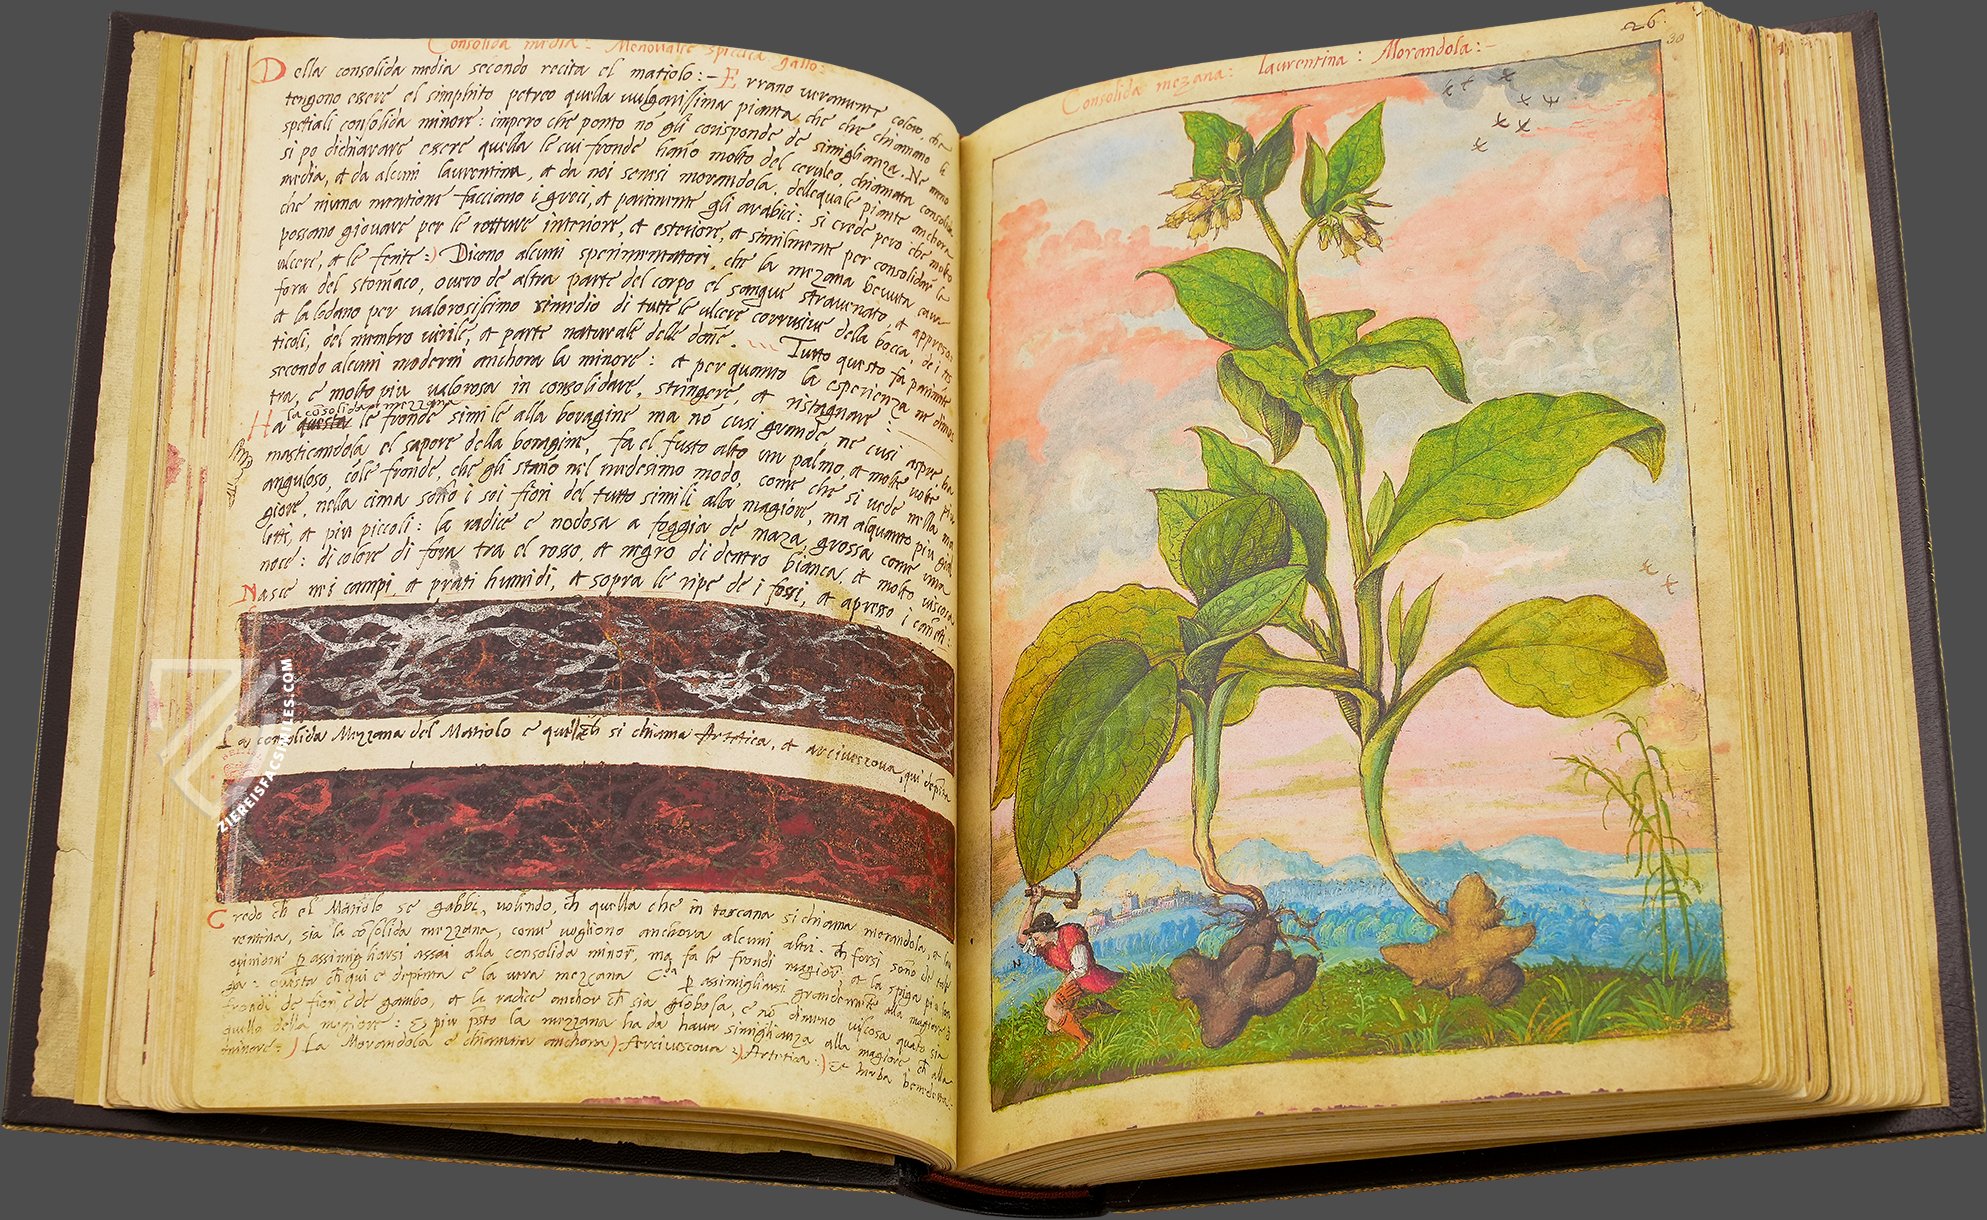 Consolida media: Menoualie spiccica gallo:
Della consolida media secondo recita el matiolo:– Errano veramente coloro, che
tengono essere el simphito petreo quella vulgarissima pianta, che chiamano le
spetiali consolida minore: impero che ponto nō gli corisponde de simiglianza. Ne meno
si po dichiarare essere quella le cui fronde hano molto del ceruleo, chiamata consolida
media, et da alcuni laurentina, et da noi senesi morandola, dellequale piante anchora
che niuna mentione facciano i greci, et parimente gli arabici: si crede pero che molto
possano giovare per le rotture interiore, et esteriore, et similmente per consolidar le
ulcere, et le ferite:) Dicono alcuni sperimentatori, che la mezana bevuta cava
fora del stomaco, overo de altra parte del corpo el sangue stravenato, et appresso
et la lodano per valorosissimo rimidio di tutte le ulcere corrosive della bocca, de i tes
ticoli, del membro virile, et parte naturale delle donē. Tutto questo fa parimente
secondo alcuni moderni anchora la minore: et per quanto la esperienza ne dimos
tra, e molto piu valorosa in consolidare, stringere, et ristagnare:
la cosolida mezzana
Ha questa le fronde simile alla boragine ma nō cusi grande, ne cusi aspre, ha
masticandola el sapore della boragine, fa el fusto alto un palmo, et molte volte piu
anguloso, cole fronde, che gli stano nel medesimo modo, come che si vede nella ma
giore, nella cima sono i soi fiori del tutto simili alla magiore, ma alquanto piu gial
letti, et piu piccoli: la radice e nodosa a foggia de maza, grossa come una
noce: di colore di fora tra el rosso, et negro di dentro bianca, et molto viscosa
Nasce nei campi, et prati humidi, et sopra le ripe de i fossi, et apresso i
La consolida Mezzana del Matiolo e quella ch si chiama Artetica, et arcivescova, qui depinta
Credo ch el Matiolo se gabbi, volindo, ch quella che in toscana si chiama morandola, et lau
rentina, sia la cōsolida mezzana, come vogliono anchora alcuni altri. ch forsi sono de tale
opinione p assimigliarsi assai alla consolida minor, ma fa le frondi magior, et la spiga piu
questa ch qui e depinta e la vera mezzana p assimigliarsi grandemente alla magiore
frondi de fiori, e de gambo, et la radice anchor ch sia globosa, e nō dimeno viscosa quāto sia
quella della magiore: E piu psto la mezzana ha da haver simiglianza alla magiore, ch alla
minore:) La Morandola e chiamata anchora) Arcivescova:) Artetica:) Et herba benedetta:
Consolida mezana: laurentina: Morandola:–
26.
30
N
ZIEREISFACSIMILES.COM